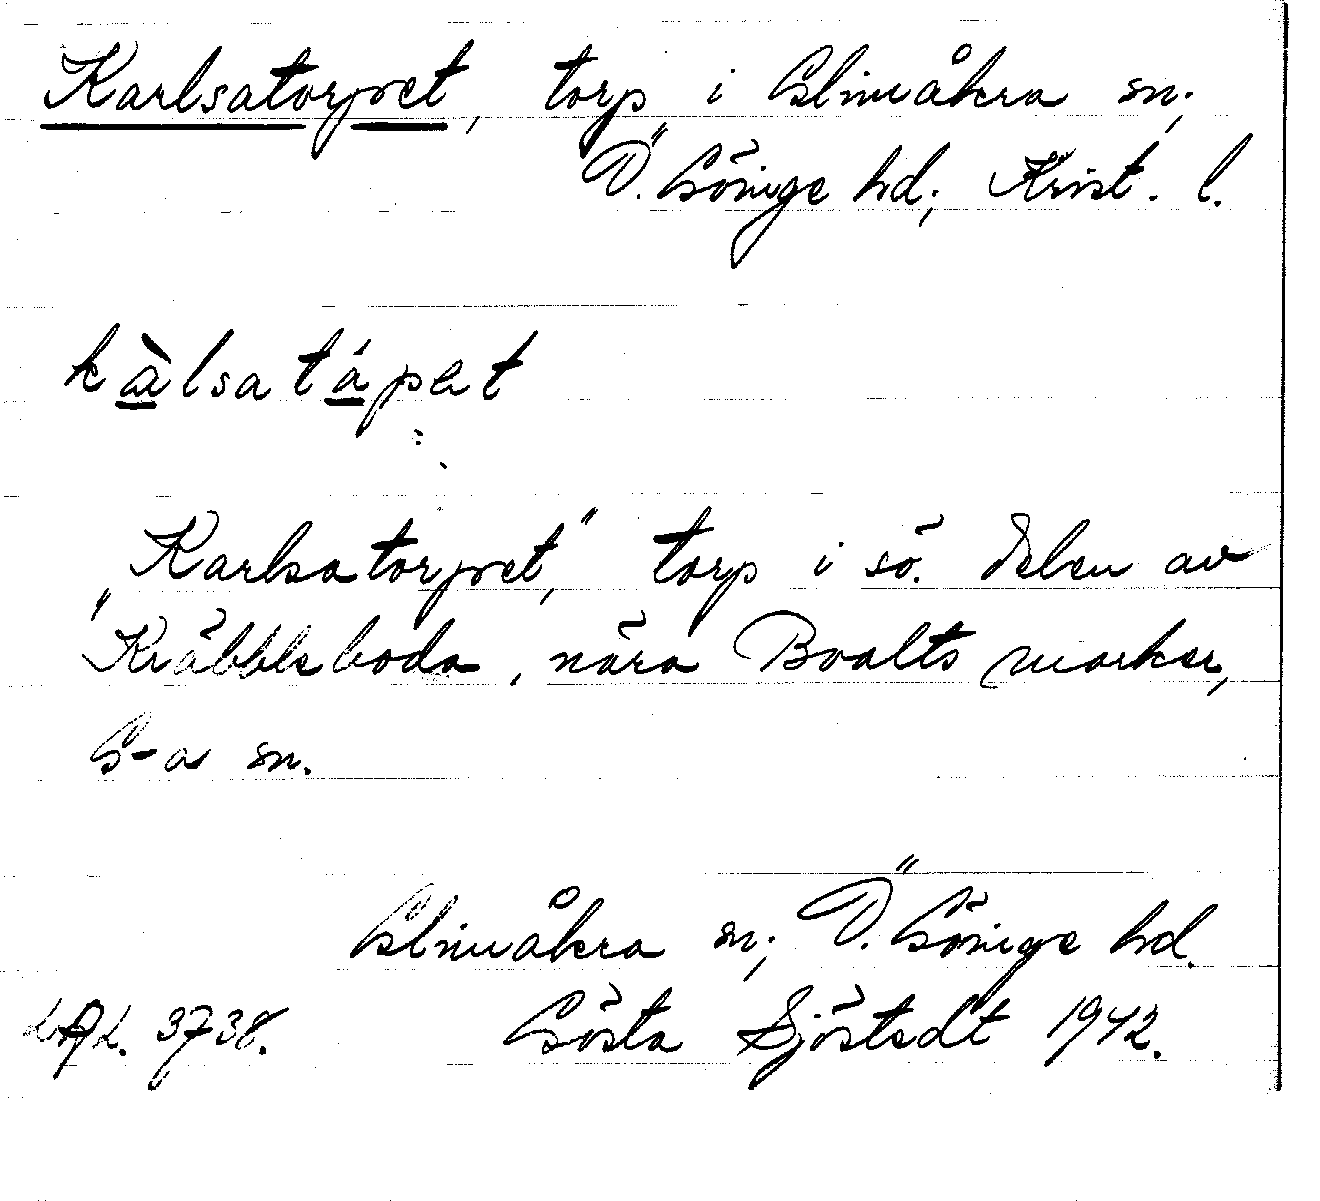 Karlsatorpet, torp i Glimåkra sn;
Ö. Göinge hd; Krist. l.
kàlsatápet
„Karlsatorpet,” torp i sö. delen av
Kräbbleboda, nära Boalts marker,
G-a sn.
Glimåkra sn; Ö. Göinge hd.
LAL. 3738. Gösta Sjöstedt 1942.